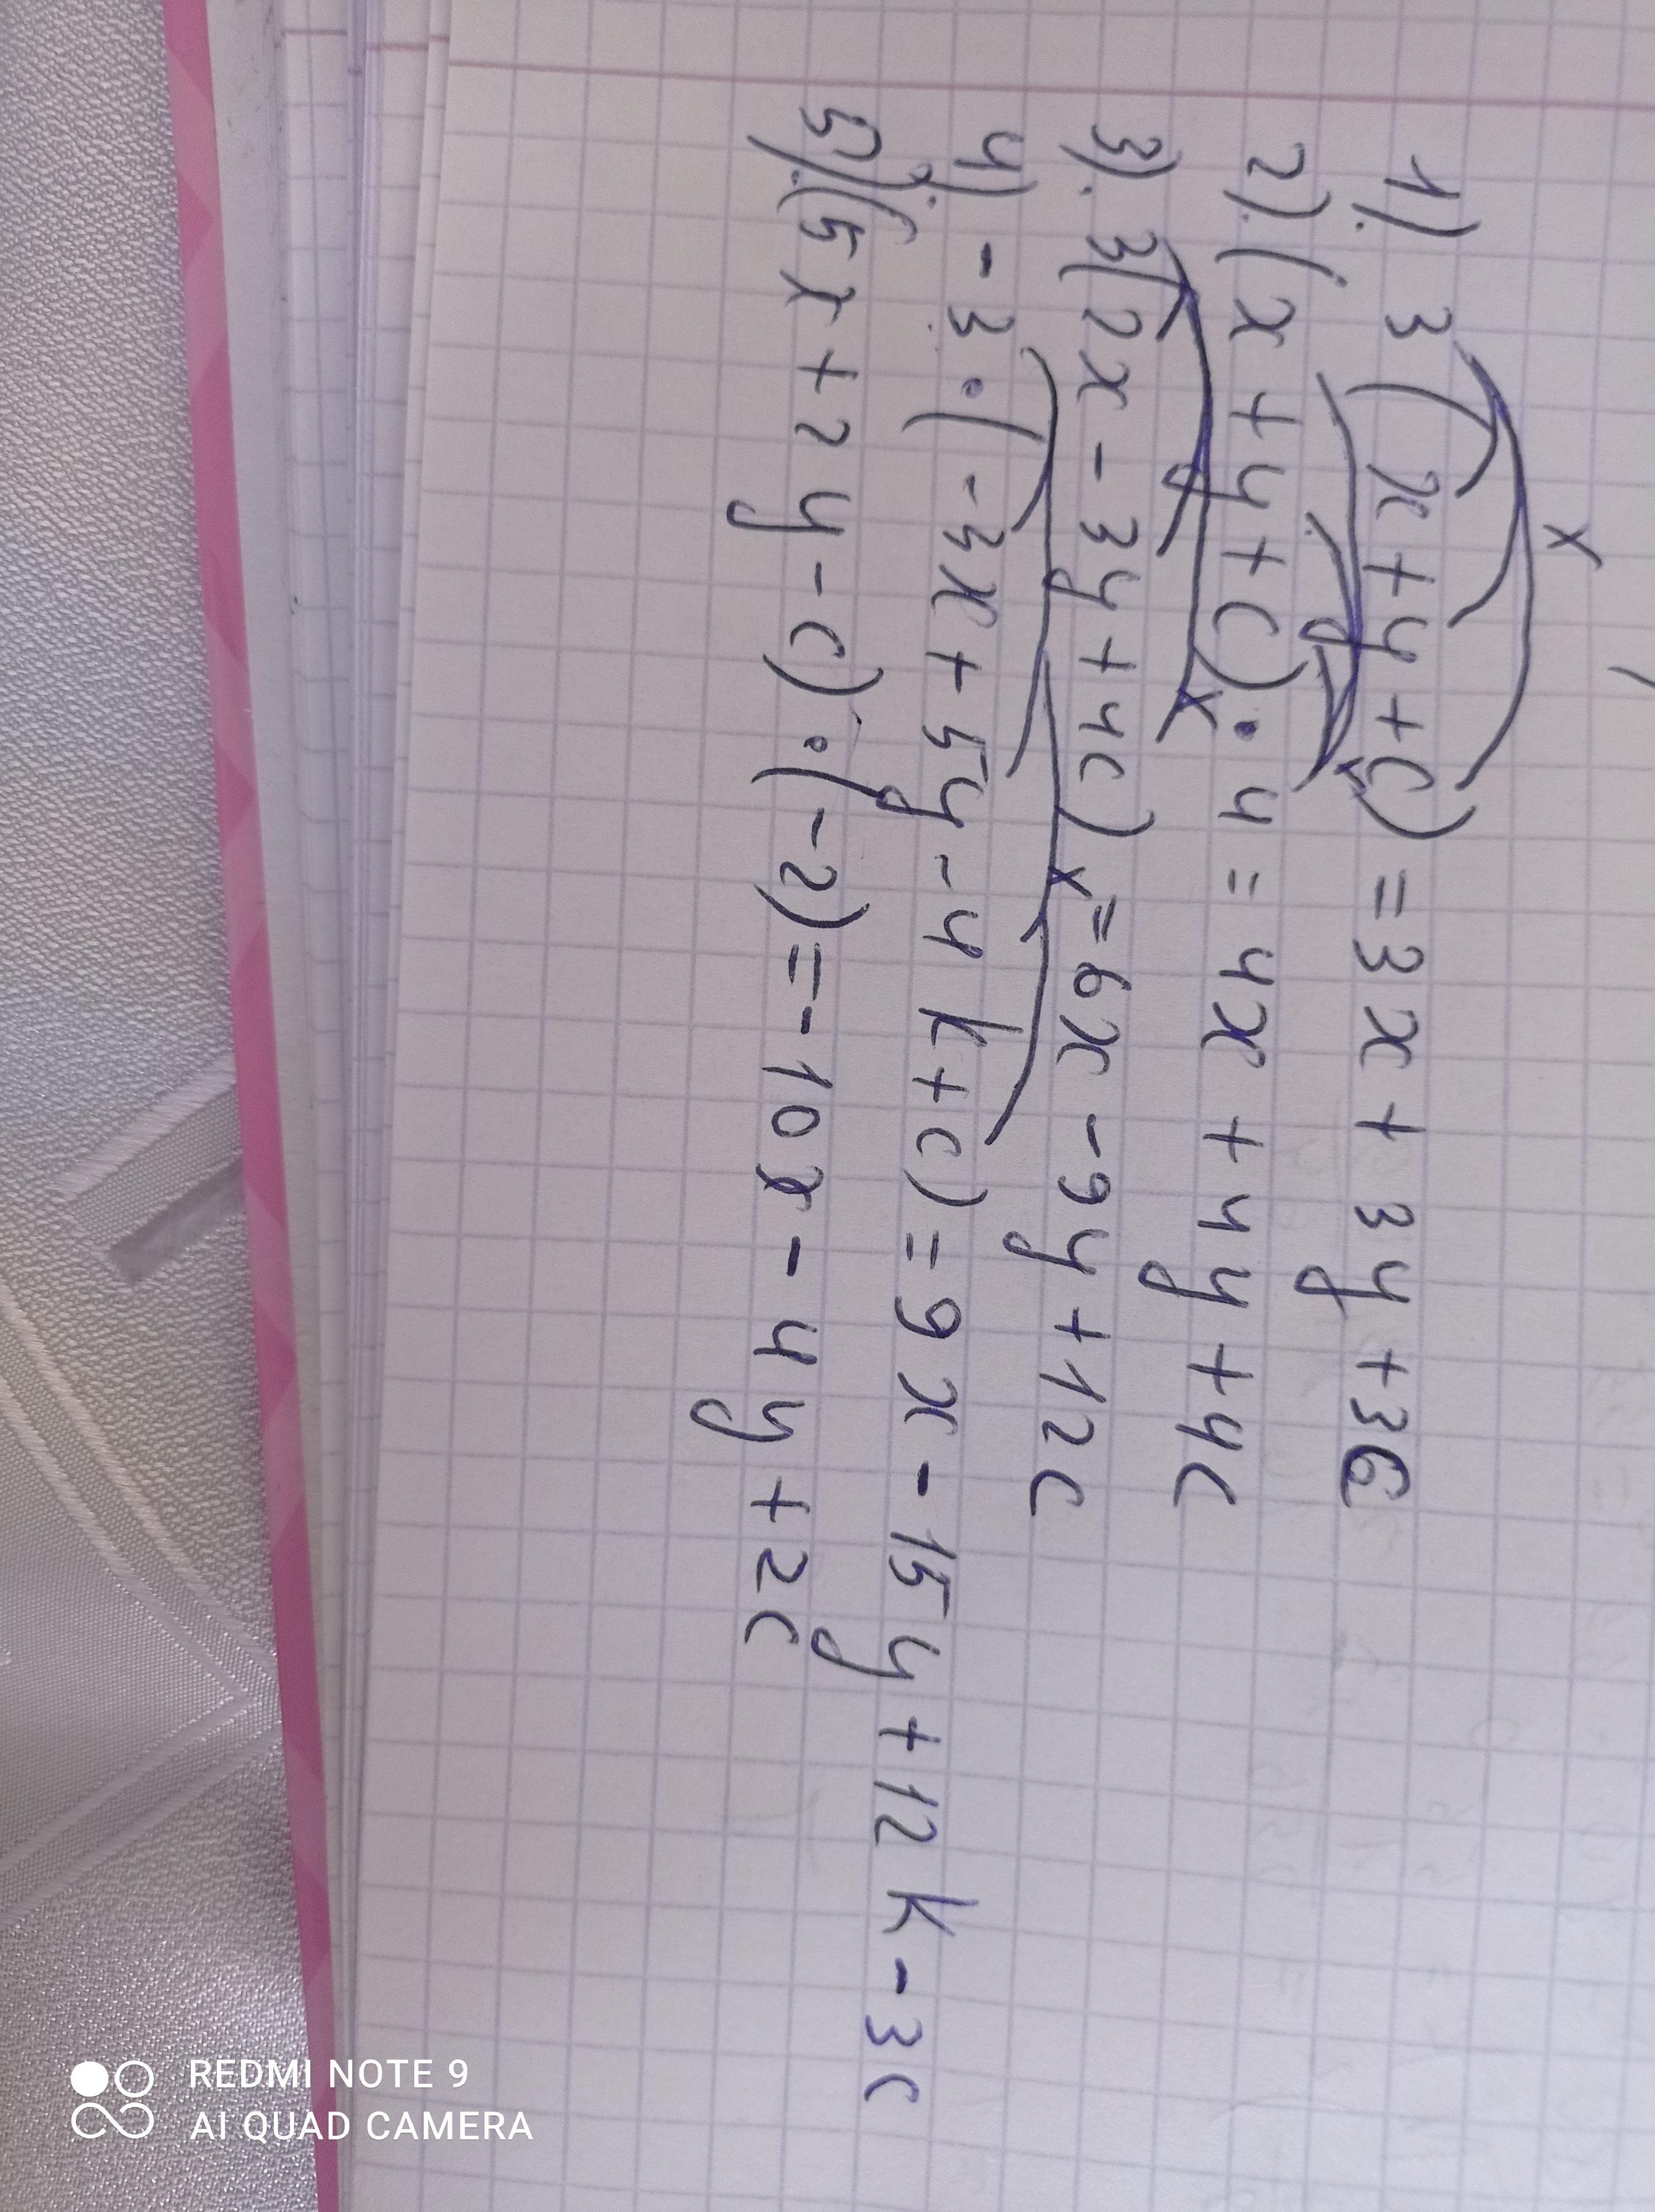 1). 3(x+y+c) = 3x + 3y + 3c
2). (x+y+c) · 4 = 4x + 4y + 4c
3). 3(2x - 3y + 4c) = 6x - 9y + 12c
4). -3 · (-3x + 5y - 4k + c) = 9x - 15y + 12k - 3c
5). (5x + 2y - c) · (-2) = -10x - 4y + 2c
REDMI NOTE 9
AI QUAD CAMERA